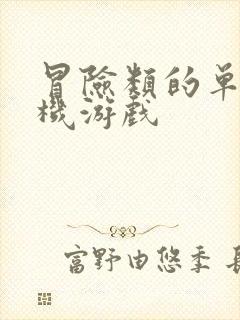 冒險類的单
機游戲
富野由悠季